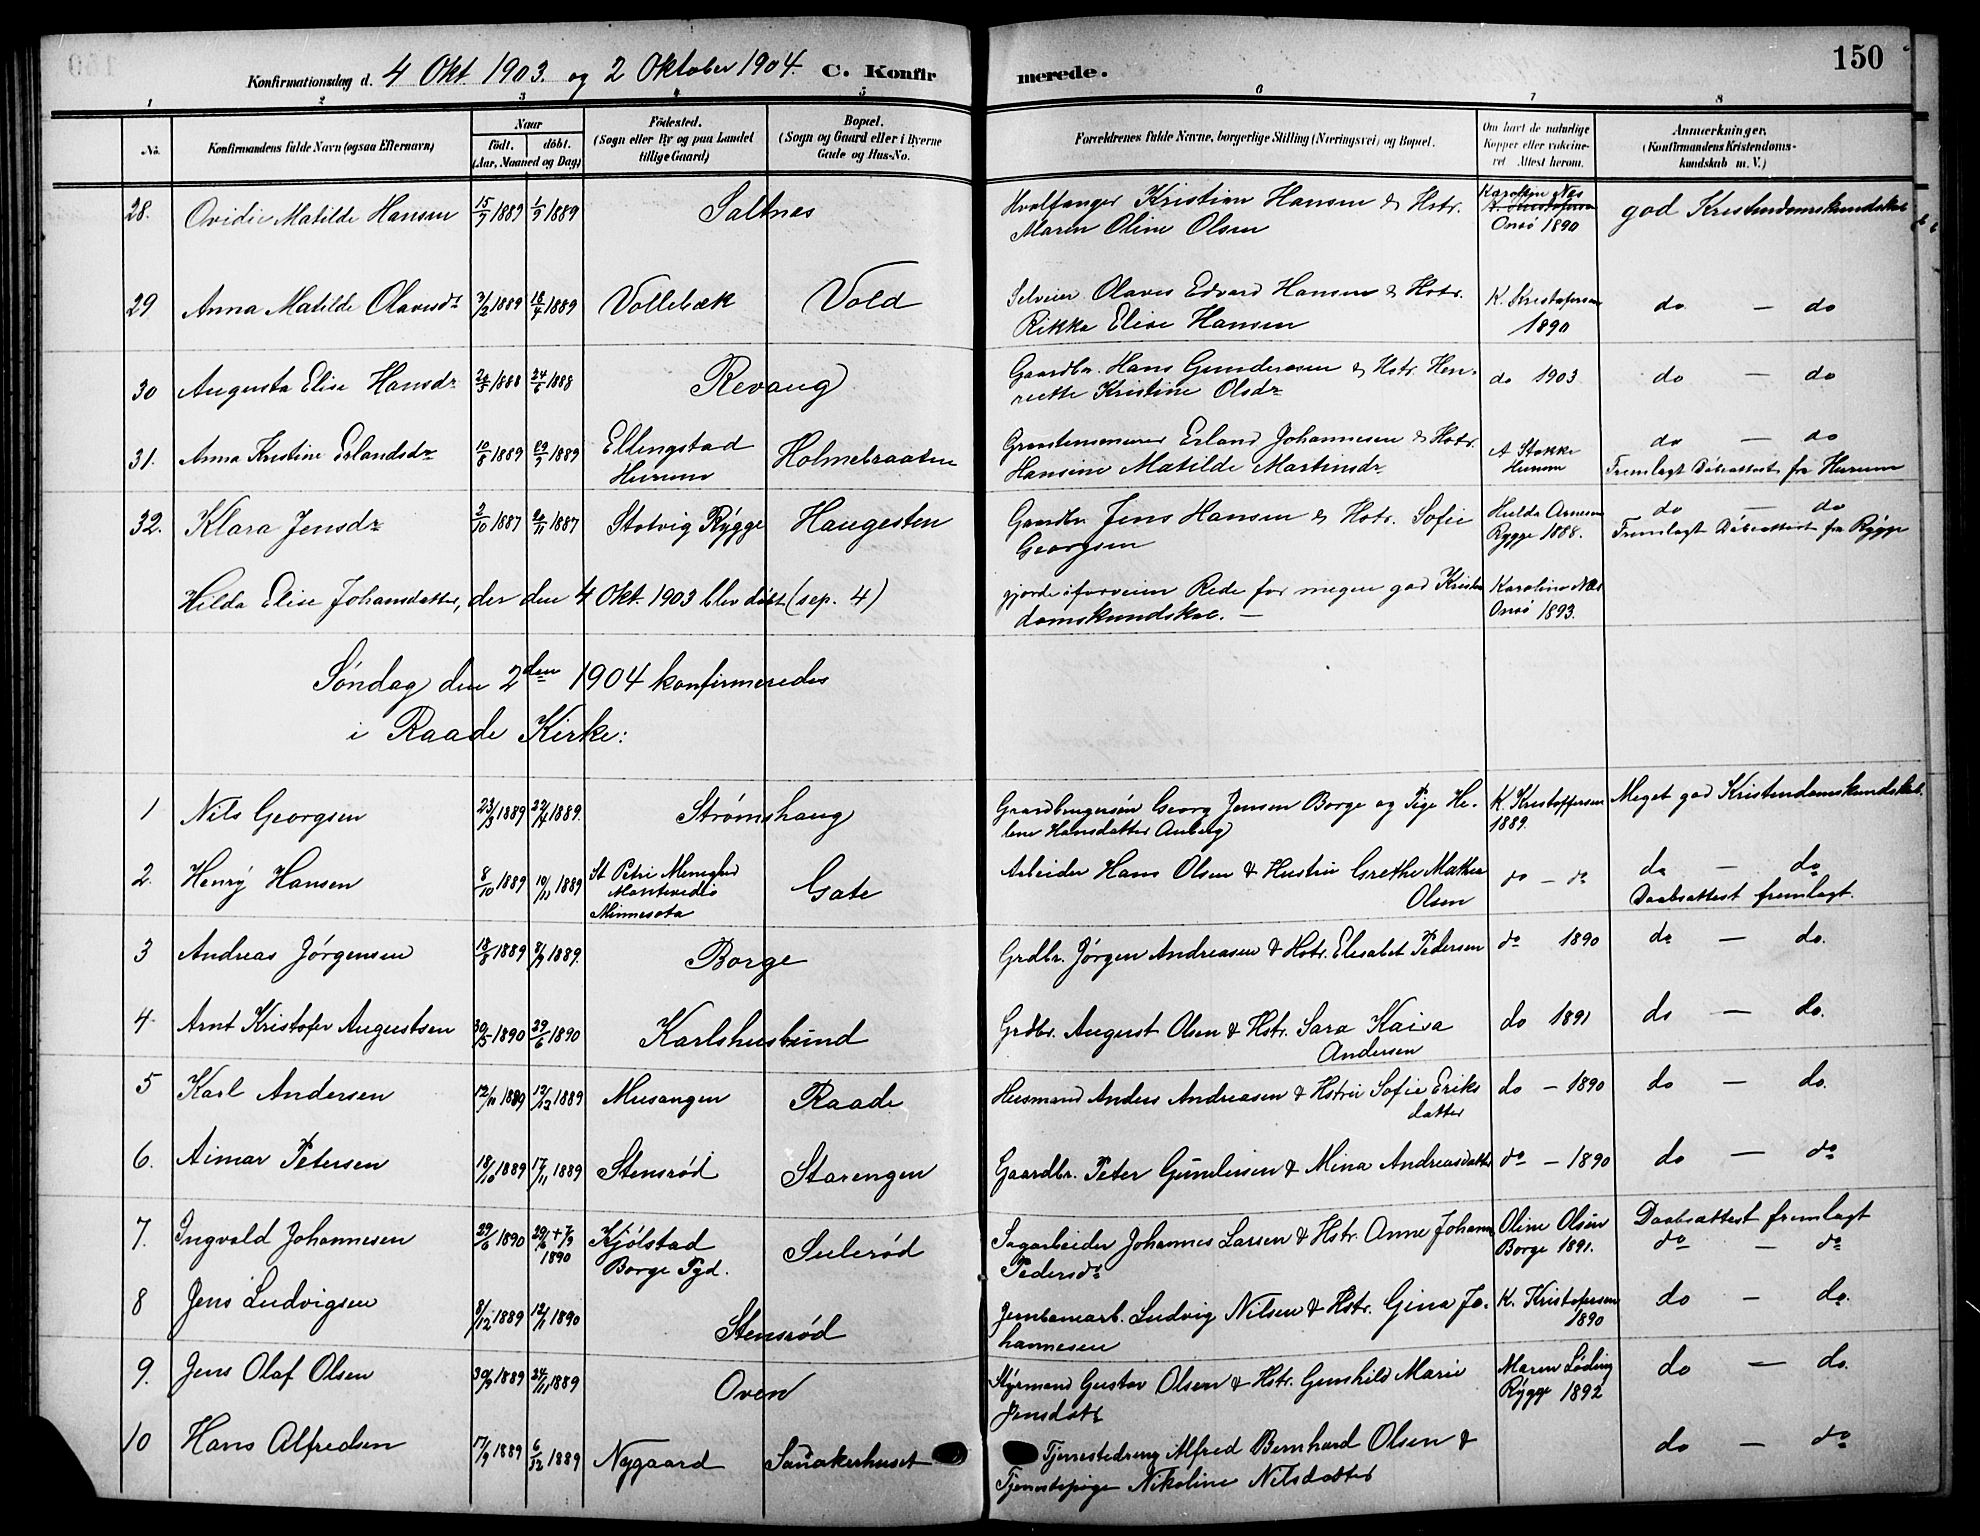 150
Konfirmationsdag d. 4 Okt. 1903. og 2 Oktober 1904. C. Konfirmerede.
1 2 3 4 5 6 7 8
No. Konfirmandens fulde Navn (ogsaa Efternavn) Naar født. døbt. (Aar, Maaned og Dag) Fødested. (Sogn eller By og paa Landet tillige Gaard) Bopæl. (Sogn og Gaard eller i Byerne Gade og Hus-No. Forældrenes fulde Navne, borgerlige Stilling (Næringsvei) og Bopæl. Om havt de naturlige Kopper eller vaccineret Attest herom. Anmærkninger. (Konfirmandens Kristendomskundskab m. V.)
28. Ovidie Matilde Hansen 15/7 1889 1/9 1889 Saltnes Hvalfanger Kristian Hansen & Hstr. Karoline Næs god Kristendomskundskab
Maren Oline Olsen Onsø 1890
29 Anna Matilde Olavsdt 3/2 1889 18/4 1889 Vollebæk Vold Selveier Olaves Edvard Hansen & Hstr. K. Kristofersen do — do
Rikka Elise Hansen 1890
30 Augusta Elise Hansdr 20/5 1888 24/6 1888 Revaug Gaardbr. Hans Gundersen & Hstr. Hen- do 1903 do — do
riette Kristine Olsdr
31. Anna Kristine Erlandsdr 10/8 1889 29/9 1889 Ellingstad Holmebraaten Erland Johannesen & Hstr. A Stokke do — do
Hurum Hansine Matilde Martinsdr Hurum Fremlagt Døbeattest fra Hurum
32. Klara Jensdr 2/10 1887 20/11 1887 Stotvig Rygge Haugesten Gaardbr. Jens Hansen & Hstr. Sofie Hulda Arnesen do — do
Georgsen Rygge 1888. Fremlagt Døbeattest fra Rygge
Hilda Elise Johansdatter, der den 4 Okt. 1903 blev døbt (sep. 4) gjorde iforveien Rede for megen god Kristen- Karoline Næs
domskundskab. — Onsø 1893.
Søndag den 2den 1904 konfirmeredes
i Raade Kirke:
1 Nils Georgsen 23/3 1889 22/4 1889. Strømshaug Gaardbrugersøn Georg Jensen Borge og Pige He- K. Kristoffersen Meget god Kristendomskundskab.
lene Hansdatter Auberg 1889.
2. Henry Hansen 8/10 1889 10/11 1889 St Petri Menighed Gate Arbeider Hans Olsen & Hustru Grethe Mathea do — do do — do
Montevedio Olsen Daabsattest fremlagt.
Minnesota
3 Andreas Jørgensen 18/8 1889 8/9 1889. Borge Grdbr. Jørgen Andreasen & Hstr. Elisabet Pedersen do 1890 do — do.
4 Arnt Kristofer Augustsen 30/5 1890 29/6 1890 Karlshusbund Grdbr. August Olsen & Hstr. Sara Kaisa do 1891 do — do.
Andersen
5 Karl Andersen 12/11 1889 19/12 1889 Musangen Raade Husmand Anders Andreasen & Hstru Sofie Eriks do — 1890 do — do.
datter
6. Aimar Petersen 18/10 1889 17/11 1889 Stensrød Starengen Gaardbr. Peter Gundersen & Mina Andreasdatter do — 1890 do — do
7. Ingvald Johannesen 29/6 1890 29/6 + 7/9 Kjølstad Sulerød Sagarbeider Johannes Larsen & Hstr. Anne Johanne Oline Olsen Daabsattest fremlagt
1890 Borge Pgd. Pedersdr Borge 1891. do — do
8 Jens Ludvigsen 8/12 1889 12/1 1890 Stensrød Jernbanearb. Ludvig Nilsen & Hstr. Gina Jo- K. Kristofersen do — do.
hannesen 1890
9. Jens Olaf Olsen 30/9 1889 24/11 1889 Oven Styrmand Gustav Olsen & Hstr. Gunhild Marie Maren Løding do — do.
Jensdatr Rygge 1892
10 Hans Alfredsen 17/9 1889 6/12 1889 Nygaard Tjenestedreng Alfred Bernhard Olsen & do — do
Tjenestepige Nikoline Nilsdatter